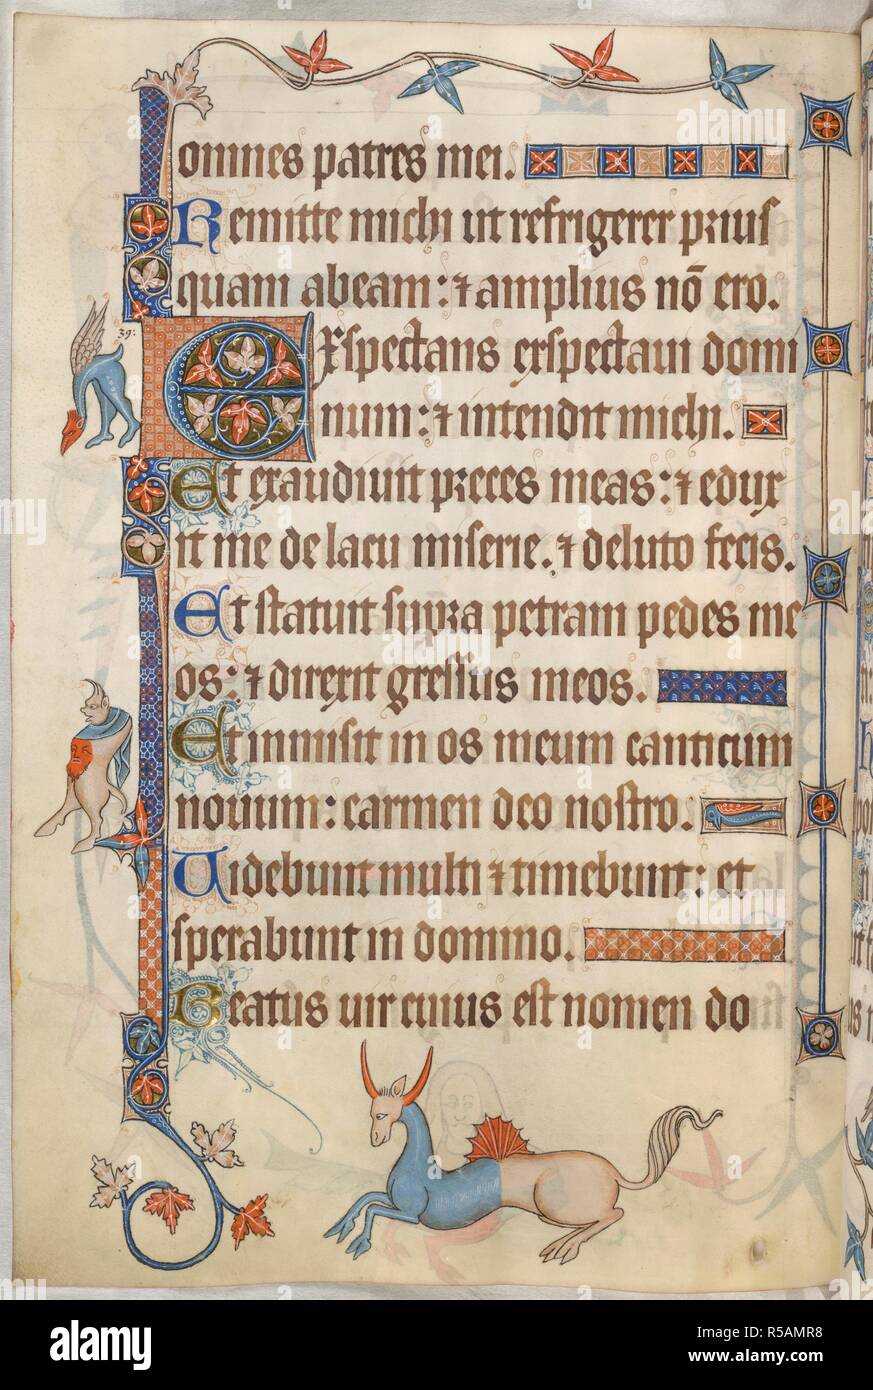 omnes patres mei.
Remitte michi ut refrigerer prius
quam abeam: ⁊ amplius nō ero.
39:
Exspectans exspectaui domi
num: ⁊ intendit michi.
Et exaudiuit preces meas: ⁊ edux
it me de lacu miserie. ⁊ deluto fecis.
Et statuit supra petram pedes me
os: ⁊ direxit gressus meos.
Et inmisit in os meum canticum
nouum: carmen deo nostro.
Uidebunt multi ⁊ timebunt: et
sperabunt in domino.
Beatus uir cuius est nomen do
alamy
Image ID: R5AMR8
www.alamy.com